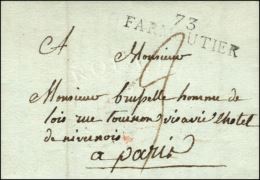 73
FARMOUTIER
A Monsieur
9
Monsieur Cuyelle homme de
lois rue tournon visavis l'hotel
de nivernois
a paris